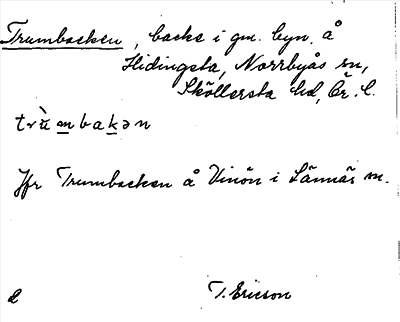 Trumbacken, backe i gm. byn å
Hidingsta, Norrbyås sn,
Sköllersta hd, Ör. l.
trùmbakən
Jfr Trumbacken å Vinön i Lännäs sn.
d T. Ericson